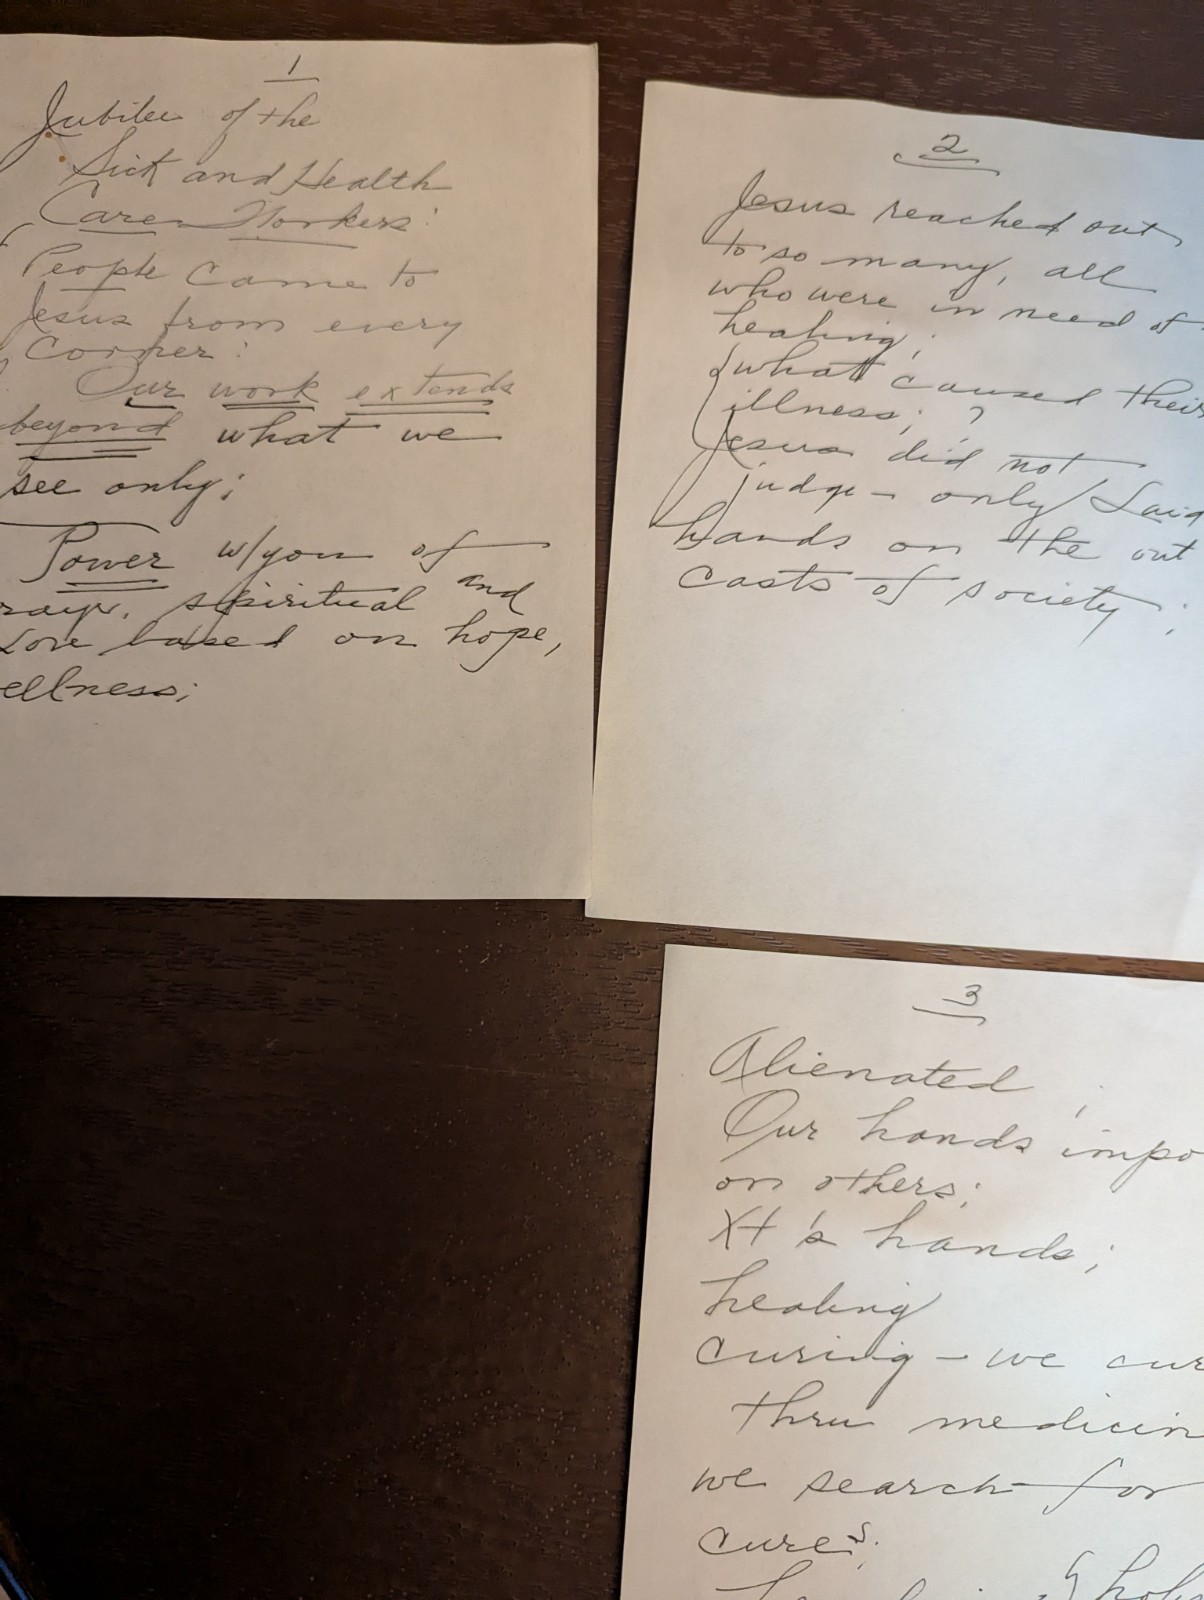 1
Jubilee of the
Sick and Health
Care Workers:
People came to
Jesus from every
corner:
Our work extends
beyond what we
see only;
Power w/you of
spiritual and
love based on hope,
ellness;
2
Jesus reached out
to so many, all
who were in need of
healing;
what caused their
illness; ?
Jesus did not
judge - only laid
hands on the out
casts of society;
3
Alienated
Our hands impo
on others;
Xt's hands;
healing
curing - we cur
thru medicin
we search for
cures;